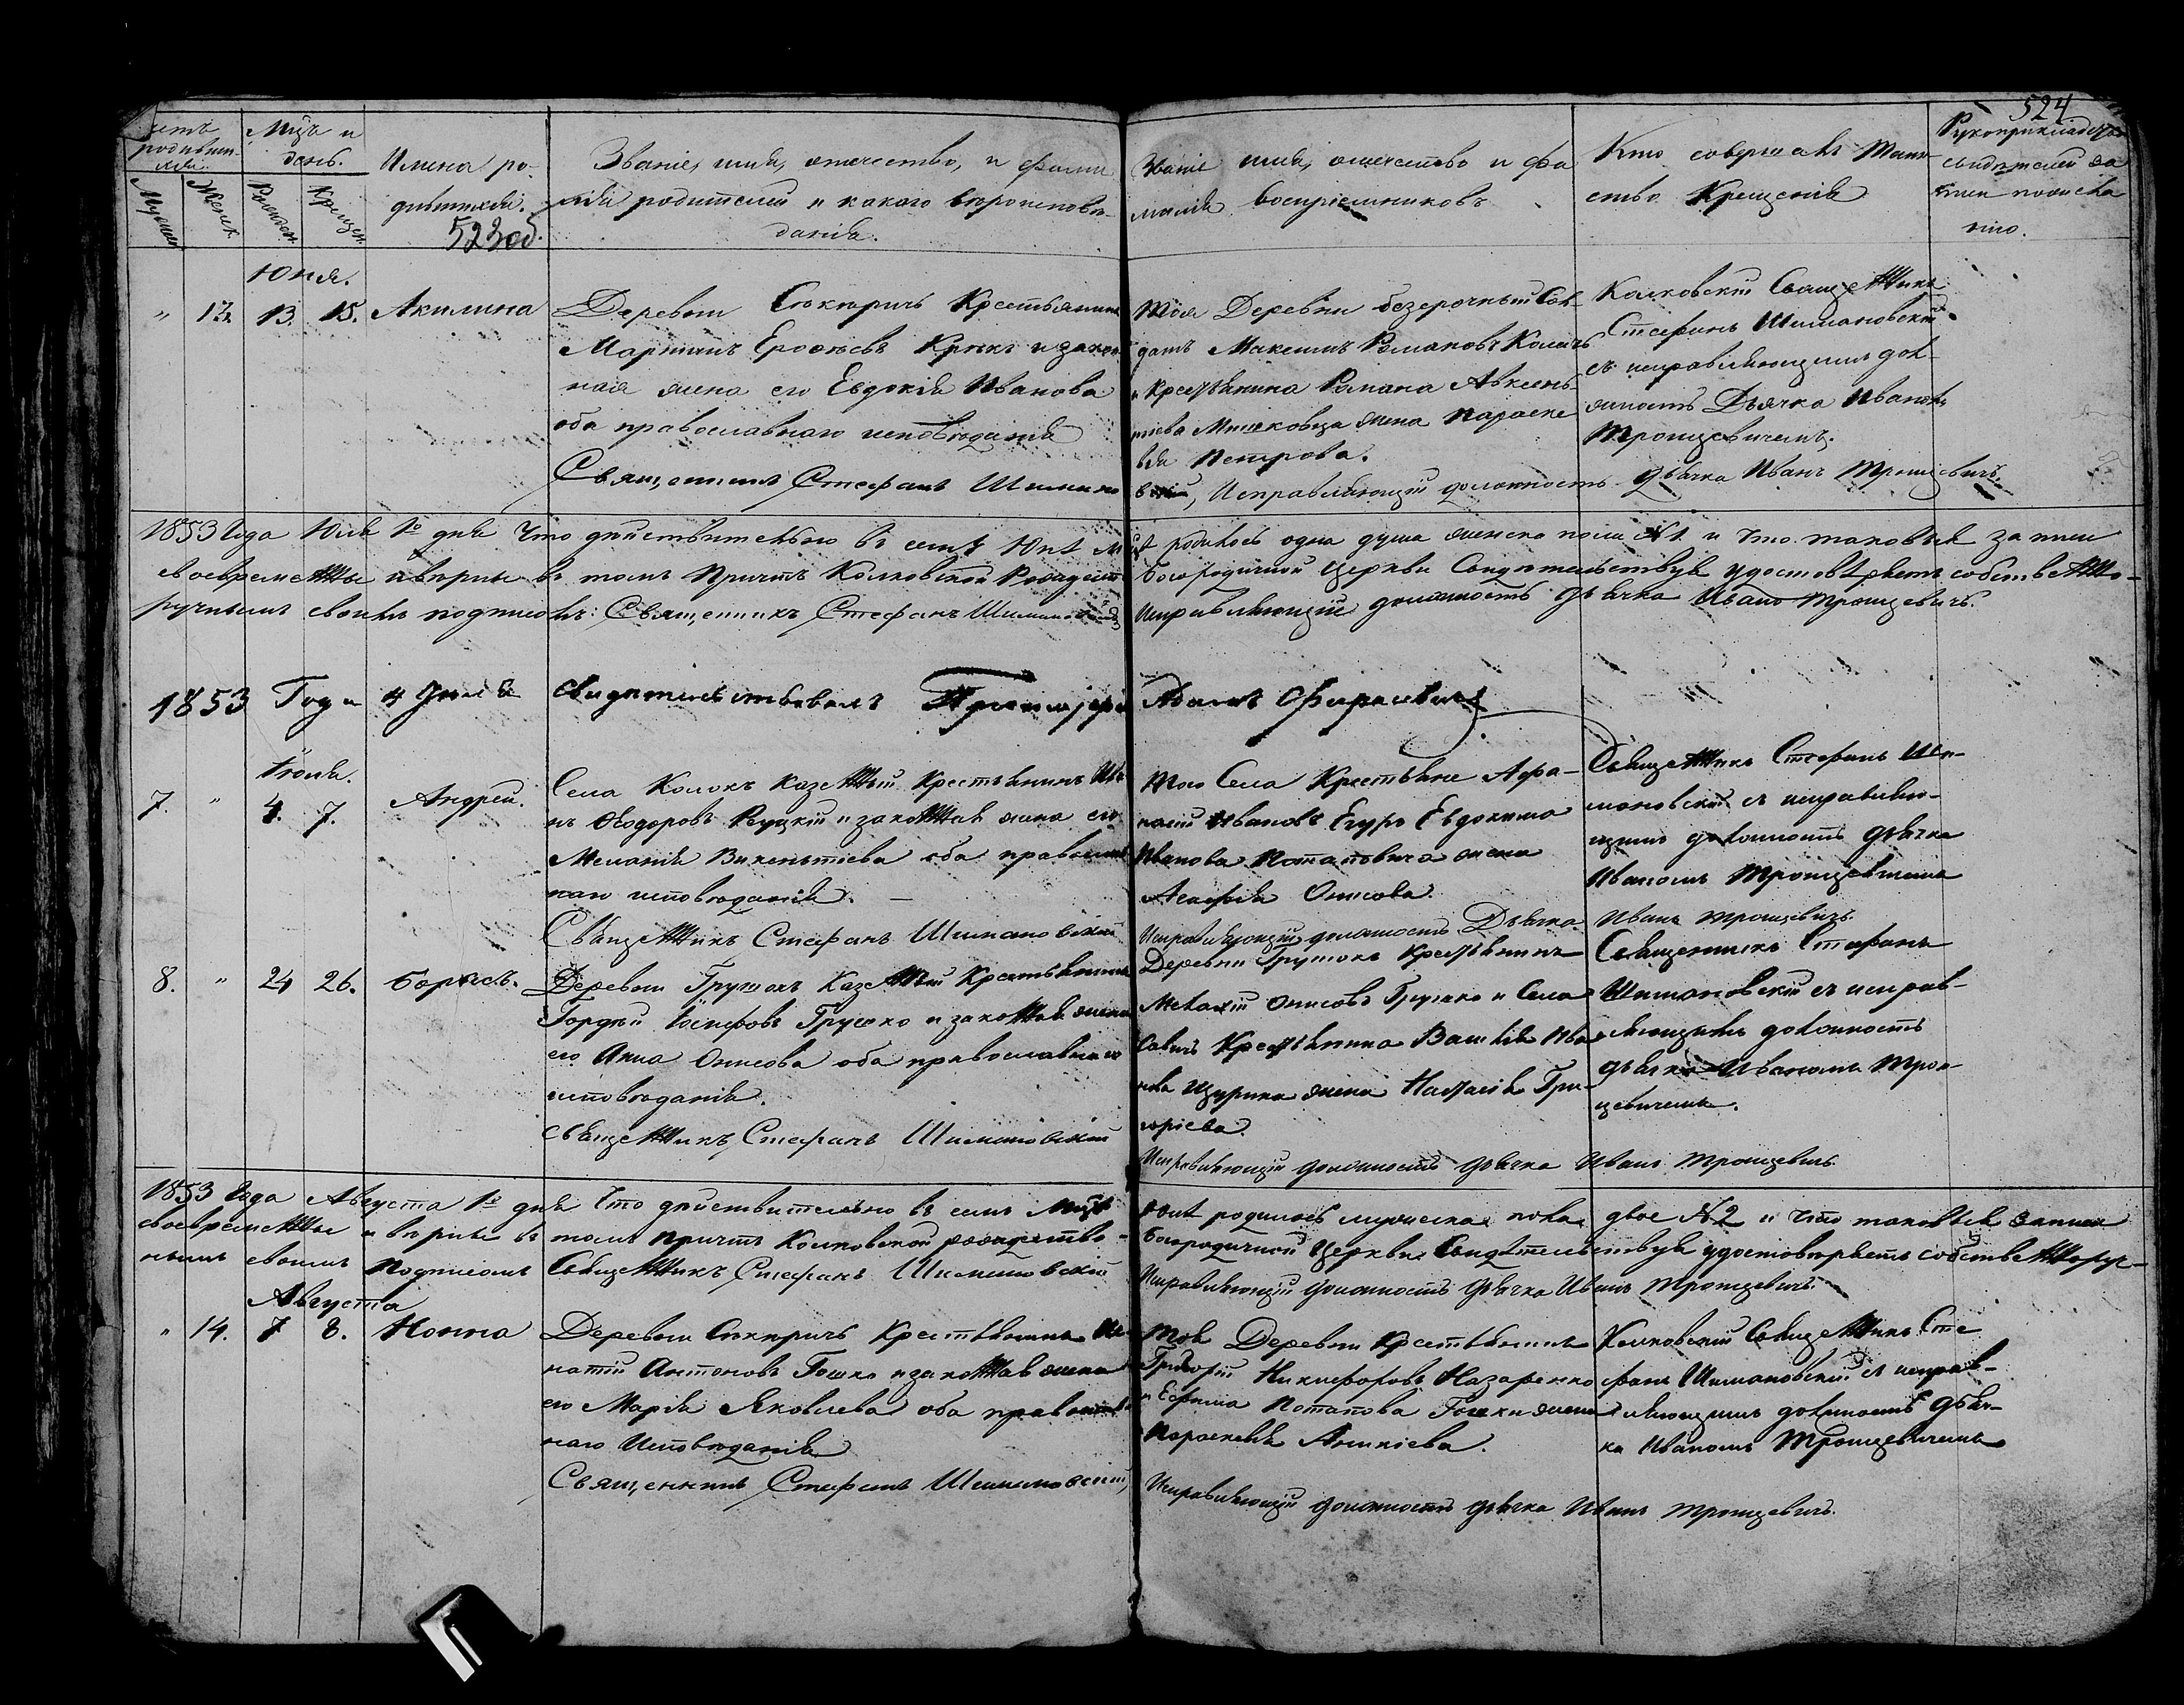 524
Мѣсяцъ и день.
Имена родившихся.
523об.
Званіе, имя, отечество, и фамилія родителей и какого вѣроисповѣданія.
Званіе имя, отечество и фамилія воспріемниковъ
Кто совершалъ таинство Крещенія
Юня.
" 13. 13. 15. Акилина
Деревни Крестьянинъ
Мартинъ Ерофѣевъ и закон
ная жена его Евдокія Иванова
оба православнаго исповѣданія
Священникъ Стефанъ
Тоя Деревни безсрочный Сол-
датъ Максимъ Романовъ
и крестьянина Романа Авксень-
тіева жена Параске
вія Петрова.
Исправляющій должность дьячка Иванъ Троицевичъ.
Колковскій Священникъ
Стефанъ Шимановскій
съ исправляющимъ дол-
жность Дьячка Иваномъ
Троицевичемъ.
1853 Года Юля 1º дня Что дѣйствительно въ семъ
родилось одна душа женска пола №1 и что таковыя записи
своевременны и вѣрны въ томъ Причтъ Колковской Рождество
богородичной Церкви Свидѣтельствуя удостовѣряетъ собственно-
ручнымъ своимъ подписомъ: Священникъ Стефанъ Шимановскій
Исправляющій должность дьячка Иванъ Троицевичъ.
1853 Года 4 свидѣтельствовалъ Адамъ
Июля.
7. " 4. 7. Андрей.
Села Колокъ казенный Крестьянинъ Ива
нъ Ѳеодоровъ и законная жена его
Меланія Викентіева оба православ
наго исповѣданія. —
Священникъ Стефанъ Шимановскій
Того Села Крестьяне Афа-
насій Ивановъ Евдокима
Иванова Потаповича жена
Агафія Онисова.
Исправляющій должность Дьячка Иванъ Троицевичъ.
Священникъ Стефанъ Ши-
мановскій съ исправляю-
щимъ должность дьячка
Иваномъ Троицевичемъ
8. " 24 26. Борисъ.
Деревни Грушокъ Казенный Крестьянинъ
Гордѣй Іосифовъ Грушко и законная жена
его Анна Онисова оба православнаго
исповѣданія.
Священникъ Стефанъ Шимановскій
Деревни Грушокъ Крестьянинъ
Онисовъ Грушко и Села
Крестьянина Василія Ива
нова жена Наталія Гри
горіева.
Исправляющій должность дьячка Иванъ Троицевичъ.
Священникъ Стефанъ
Шимановскій съ исправ-
ляющимъ должность
дьячка Иваномъ Трои-
цевичемъ.
1853 Года Августа 1º дня Что дѣйствительно въ семъ
родилось мужеска пола двое №2 и что таковыя записи
своевременны и вѣрны въ томъ Причтъ Колковской рождество-
богородичной Церкви Свидѣтельствуя удостовѣряетъ собственноруч-
нымъ своимъ подписомъ Священникъ Стефанъ Шимановскій
Исправляющій должность дьячка Иванъ Троицевичъ.
Августа
" 14. 7 8. Нонна
Деревни Крестьянинъ Иг
натій Антоновъ Гошко и законная жена
его Марія Яковлева оба православ
наго Исповѣданія
Священникъ Стефанъ Шимановскій
Тоя Деревни Крестьянинъ
Григорій Никифоровъ Назаренко
и Ефима Потапова Гошки жена
Параскевія Аникіева.
Исправляющій должность дьячка Иванъ Троицевичъ.
Колковскій Священникъ Сте
фанъ Шимановскій съ исправ-
ляющимъ должность дьяч-
ка Иваномъ Троицевичемъ